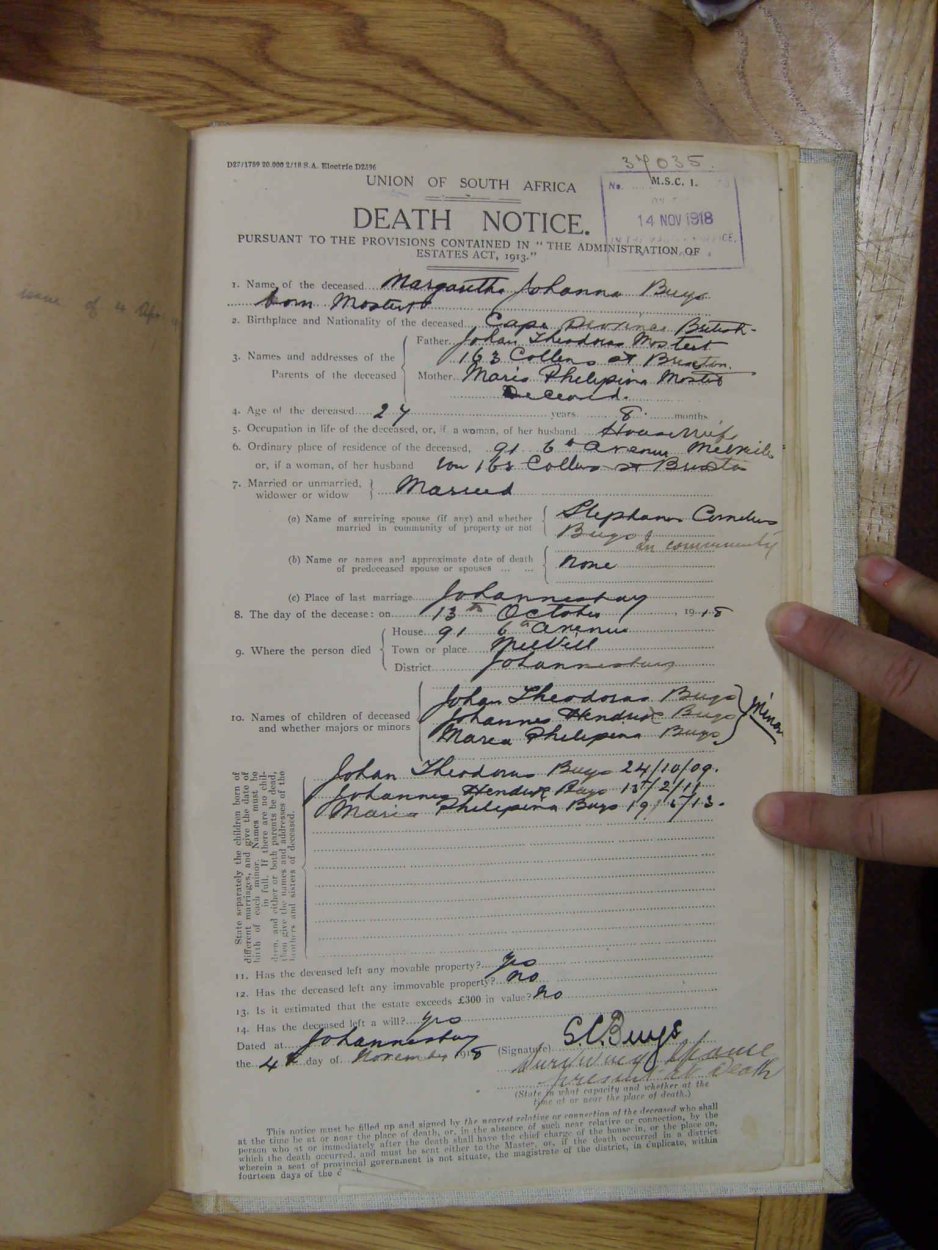 D27/1789 20.000 2/18 S.A. Electric D2396
37035
UNION OF SOUTH AFRICA
No. M.S.C. 1.
DEATH NOTICE.
14 NOV 1918
PURSUANT TO THE PROVISIONS CONTAINED IN "THE ADMINISTRATION OF
ESTATES ACT, 1913."
1. Name of the deceased Margaretha Johanna Buys
born Mostert
2. Birthplace and Nationality of the deceased Cape Province British
3. Names and addresses of the Parents of the deceased
Father Johan Theodoras Mostert
163 Collens st Brixton.
Mother Maria Philipina Mostert
Deceased.
4. Age of the deceased 27 years 8 months
5. Occupation in life of the deceased, or, if a woman, of her husband Housewife
6. Ordinary place of residence of the deceased, 91 6th Avenue Melville
or, if a woman, of her husband 163 Collins st Brixton
7. Married or unmarried, widower or widow Married
(a) Name of surviving spouse (if any) and whether married in community of property or not
Stephanus Cornelius
Buys in community
(b) Name or names and approximate date of death of predeceased spouse or spouses ... ... None
(c) Place of last marriage Johannesburg
8. The day of the decease: on 13th October 1918
9. Where the person died
House 91 6th Avenue
Town or place Melvill
District Johannesburg
10. Names of children of deceased and whether majors or minors
Johan Theodoras Buys
Johannes Hendrik Buys
Maria Philipina Buys
Minor
State separately the children born of
different marriages, and give the date of
birth of each minor. Names must be
in full. If there are no chil-
dren, and either or both parents be dead,
then give the names and addresses of the
brothers and sisters of deceased.
Johan Theodoras Buys 24/10/09.
Johannes Hendrik Buys 15/2/11
Maria Philipina Buys 19/5/13.
11. Has the deceased left any movable property? Yes
12. Has the deceased left any immovable property? No
13. Is it estimated that the estate exceeds £300 in value? No
14. Has the deceased left a will? Yes
Dated at Johannesburg
the 4th day of November 1918
(Signature) S.C. Buys
Surviving Spouse
present at Death
(State in what capacity and whether at the
time at or near the place of death.)
This notice must be filled up and signed by the nearest relative or connection of the deceased who shall
at the time be at or near the place of death, or, in the absence of such near relative or connection, by the
person who at or immediately after the death shall have the chief charge of the house in, or the place on,
which the death occurred, and must be sent either to the Master, or, if the death occurred in a district
wherein a seat of provincial government is not situate, the magistrate of the district, in duplicate, within
fourteen days of the